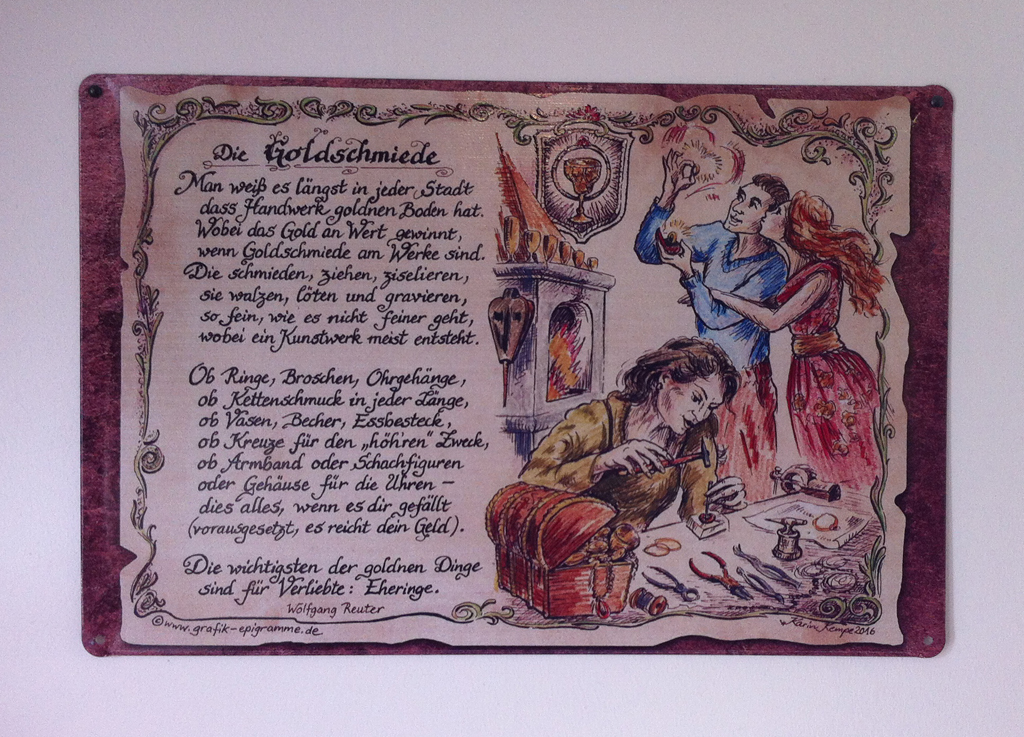 Die Goldschmiede
Man weiß es längst in jeder Stadt
dass Handwerk goldnen Boden hat.
Wobei das Gold an Wert gewinnt,
wenn Goldschmiede am Werke sind.
Die schmieden, ziehen, ziselieren,
sie walzen, löten und gravieren,
so fein, wie es nicht feiner geht,
wobei ein Kunstwerk meist entsteht.
Ob Ringe, Broschen, Ohrgehänge,
ob Kettenschmuck in jeder Länge,
ob Vasen, Becher, Essbesteck,
ob Kreuze für den „höhren" Zweck,
ob Armband oder Schachfiguren
oder Gehäuse für die Uhren –
dies alles, wenn es dir gefällt
(vorausgesetzt, es reicht dein Geld).
Die wichtigsten der goldnen Dinge
sind für Verliebte: Eheringe.
Wolfgang Reuter
©www.grafik-epigramme.de
Karin Kempe 2016